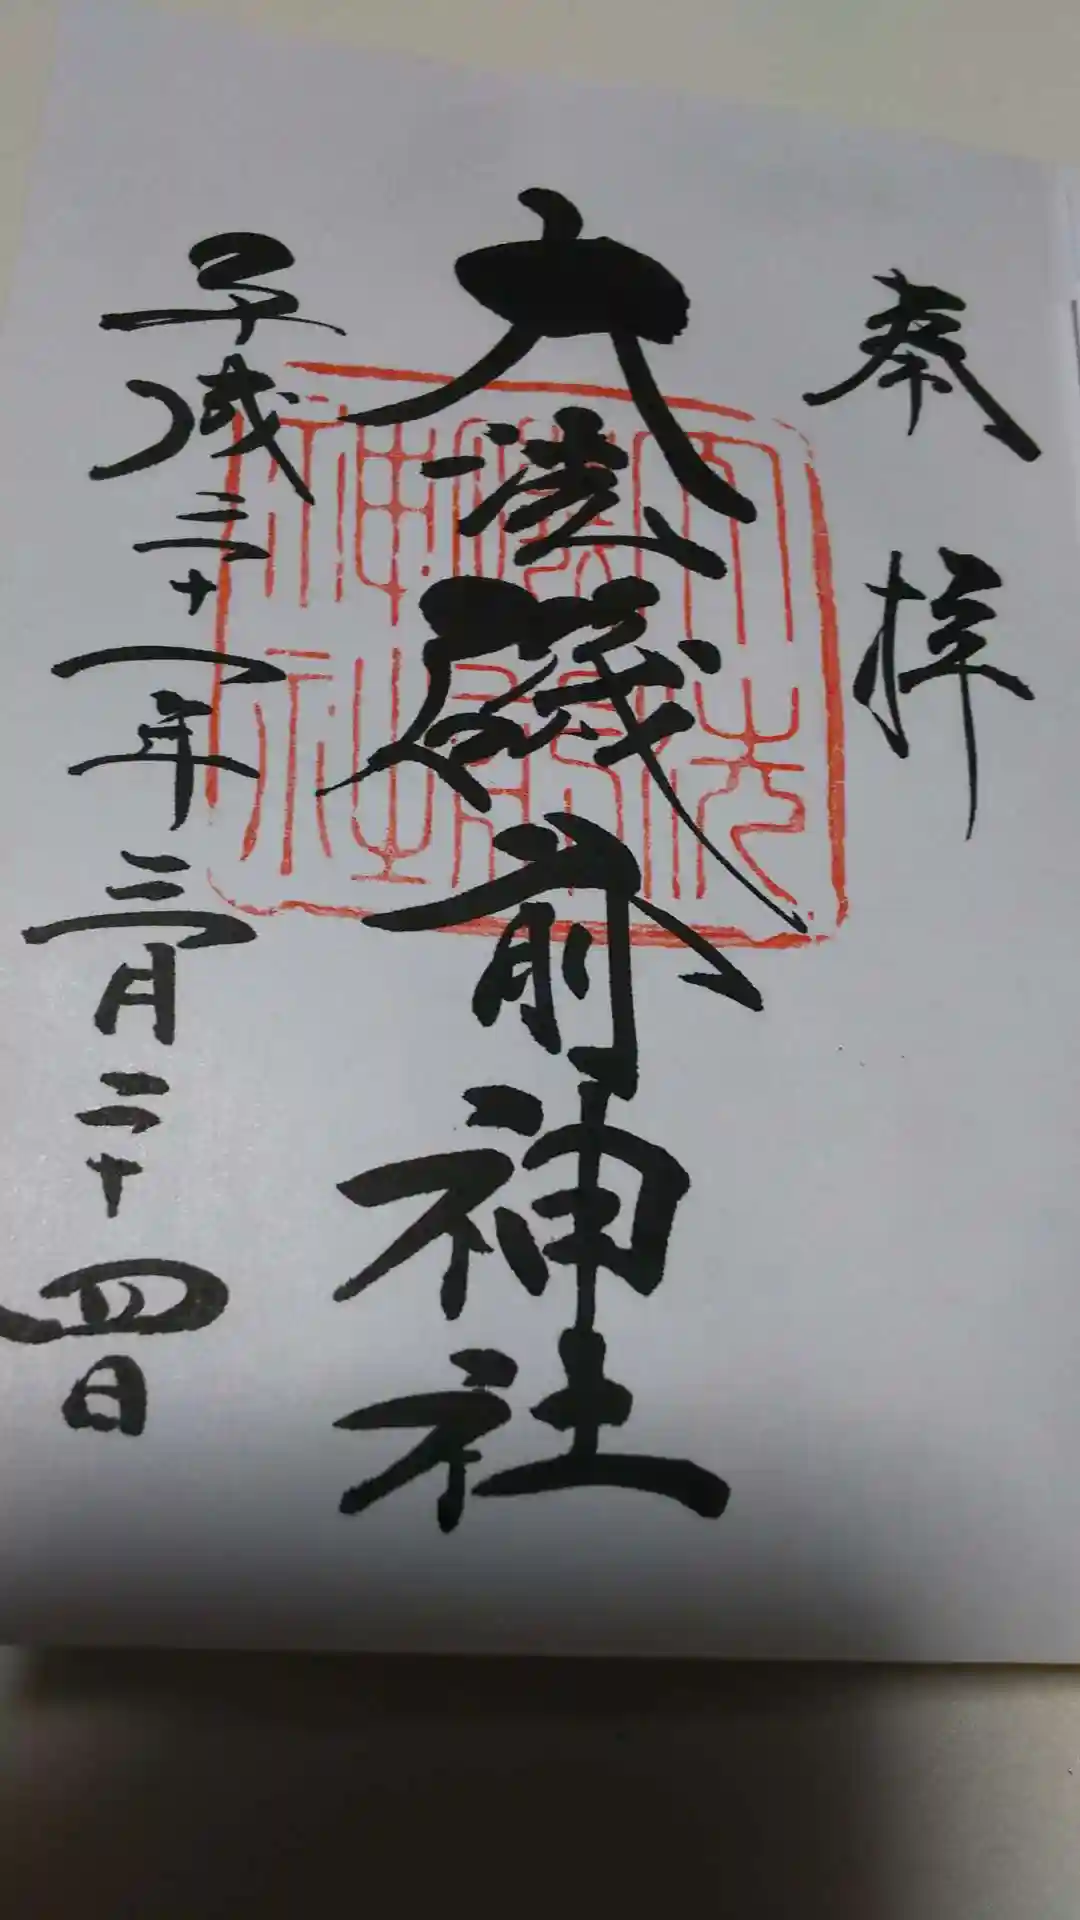 奉拝
大洗磯前神社
平成三十一年三月二十四日
大洗
磯前
神社